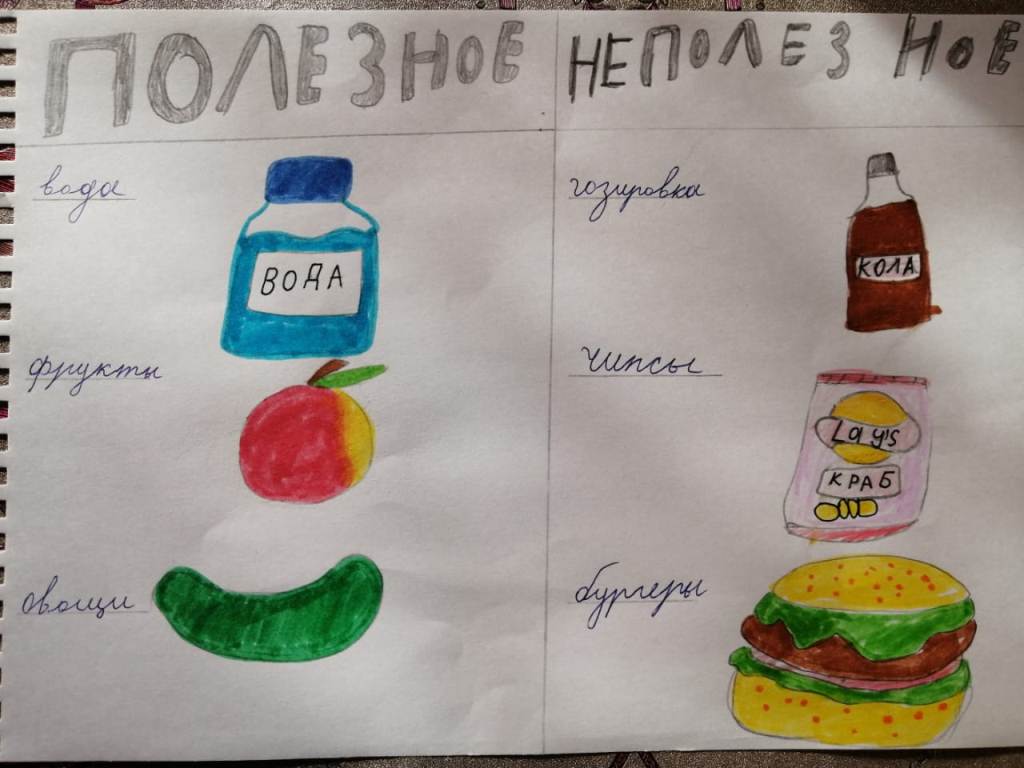 ПОЛЕЗНОЕ
НЕПОЛЕЗНОЕ
вода
ВОДА
гозировка
КОЛА
фрукты
чипсы
Lay's
КРАБ
овощи
бургеры